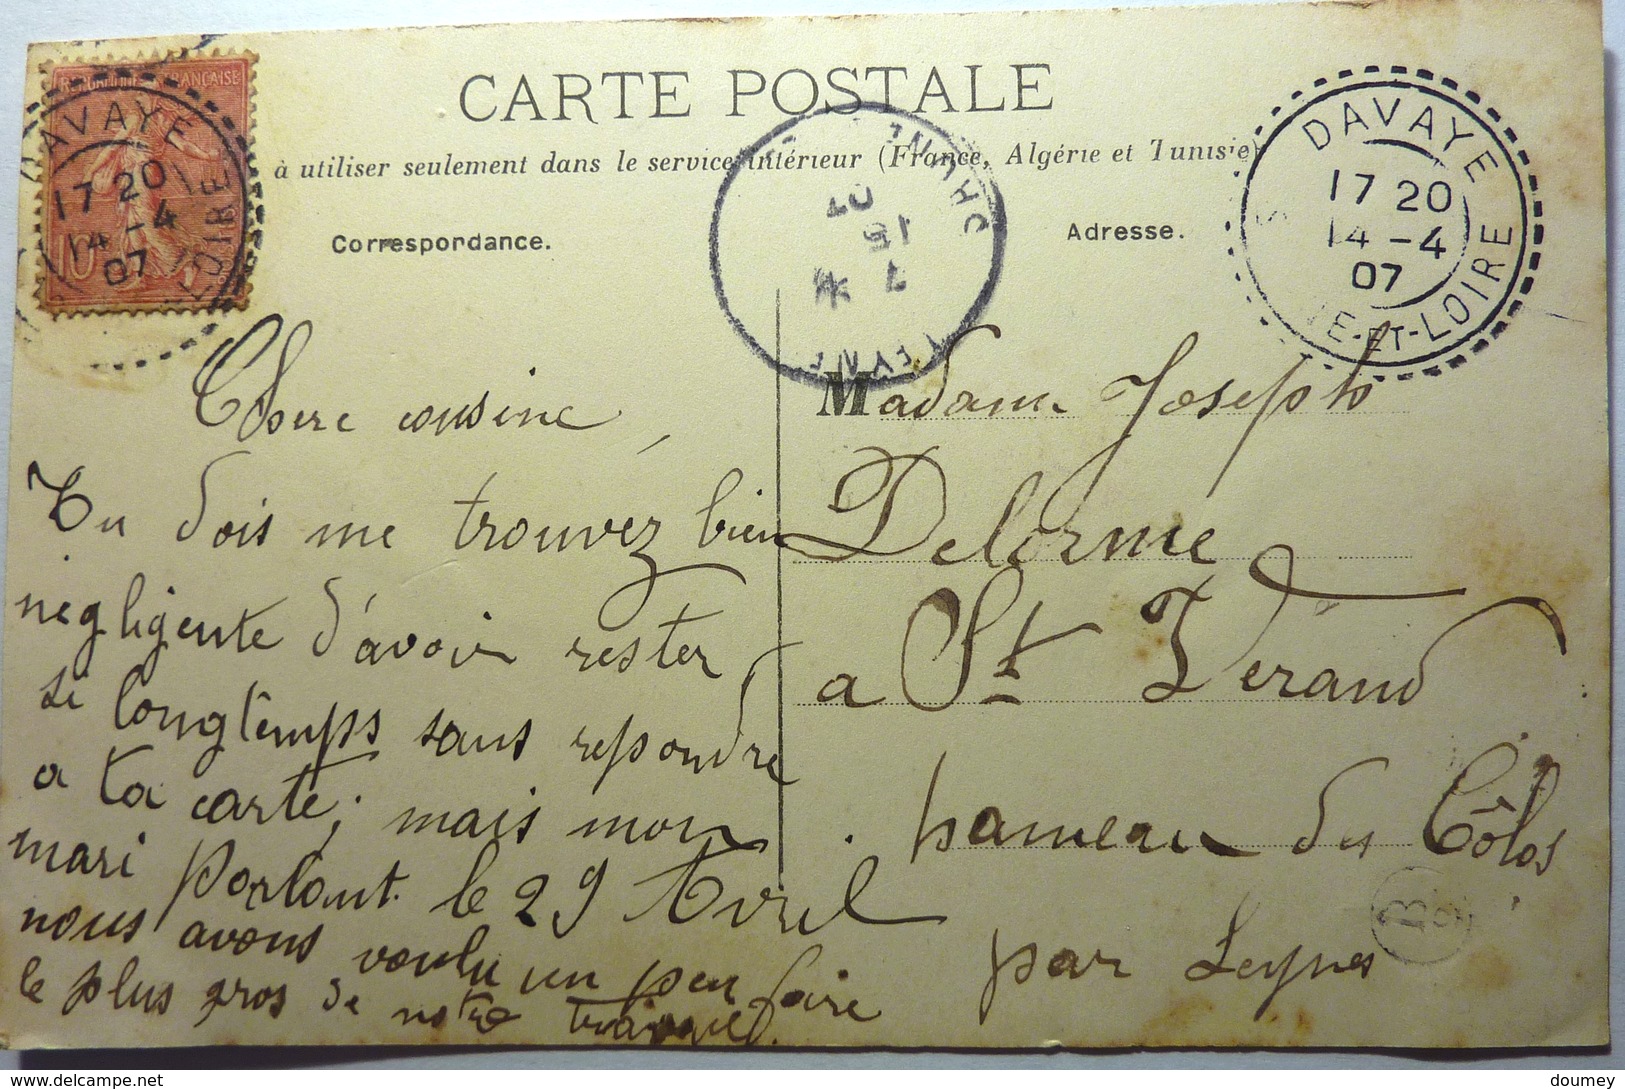 CARTE POSTALE
à utiliser seulement dans le service intérieur (France, Algérie et Tunisie)
Correspondance.
Adresse.
RÉPUBLIQUE FRANÇAISE
DAVAYE
17 20
14 -4
07
LOIRE
DAVAYE
17 20
14 -4
07
NE-ET-LOIRE
Chere cousine,
Tu dois me trouvez bien
négligente d'avoir rester
si longtemps sans repondre
a ta carte; mais mon
mari Portant le 29 Avril
nous avons voulu un peu faire
le plus gros de notre travail.
Madame Joseph
Delorme
a St Vérand
hameau du Côlas
par Leynes
B
2
doumey